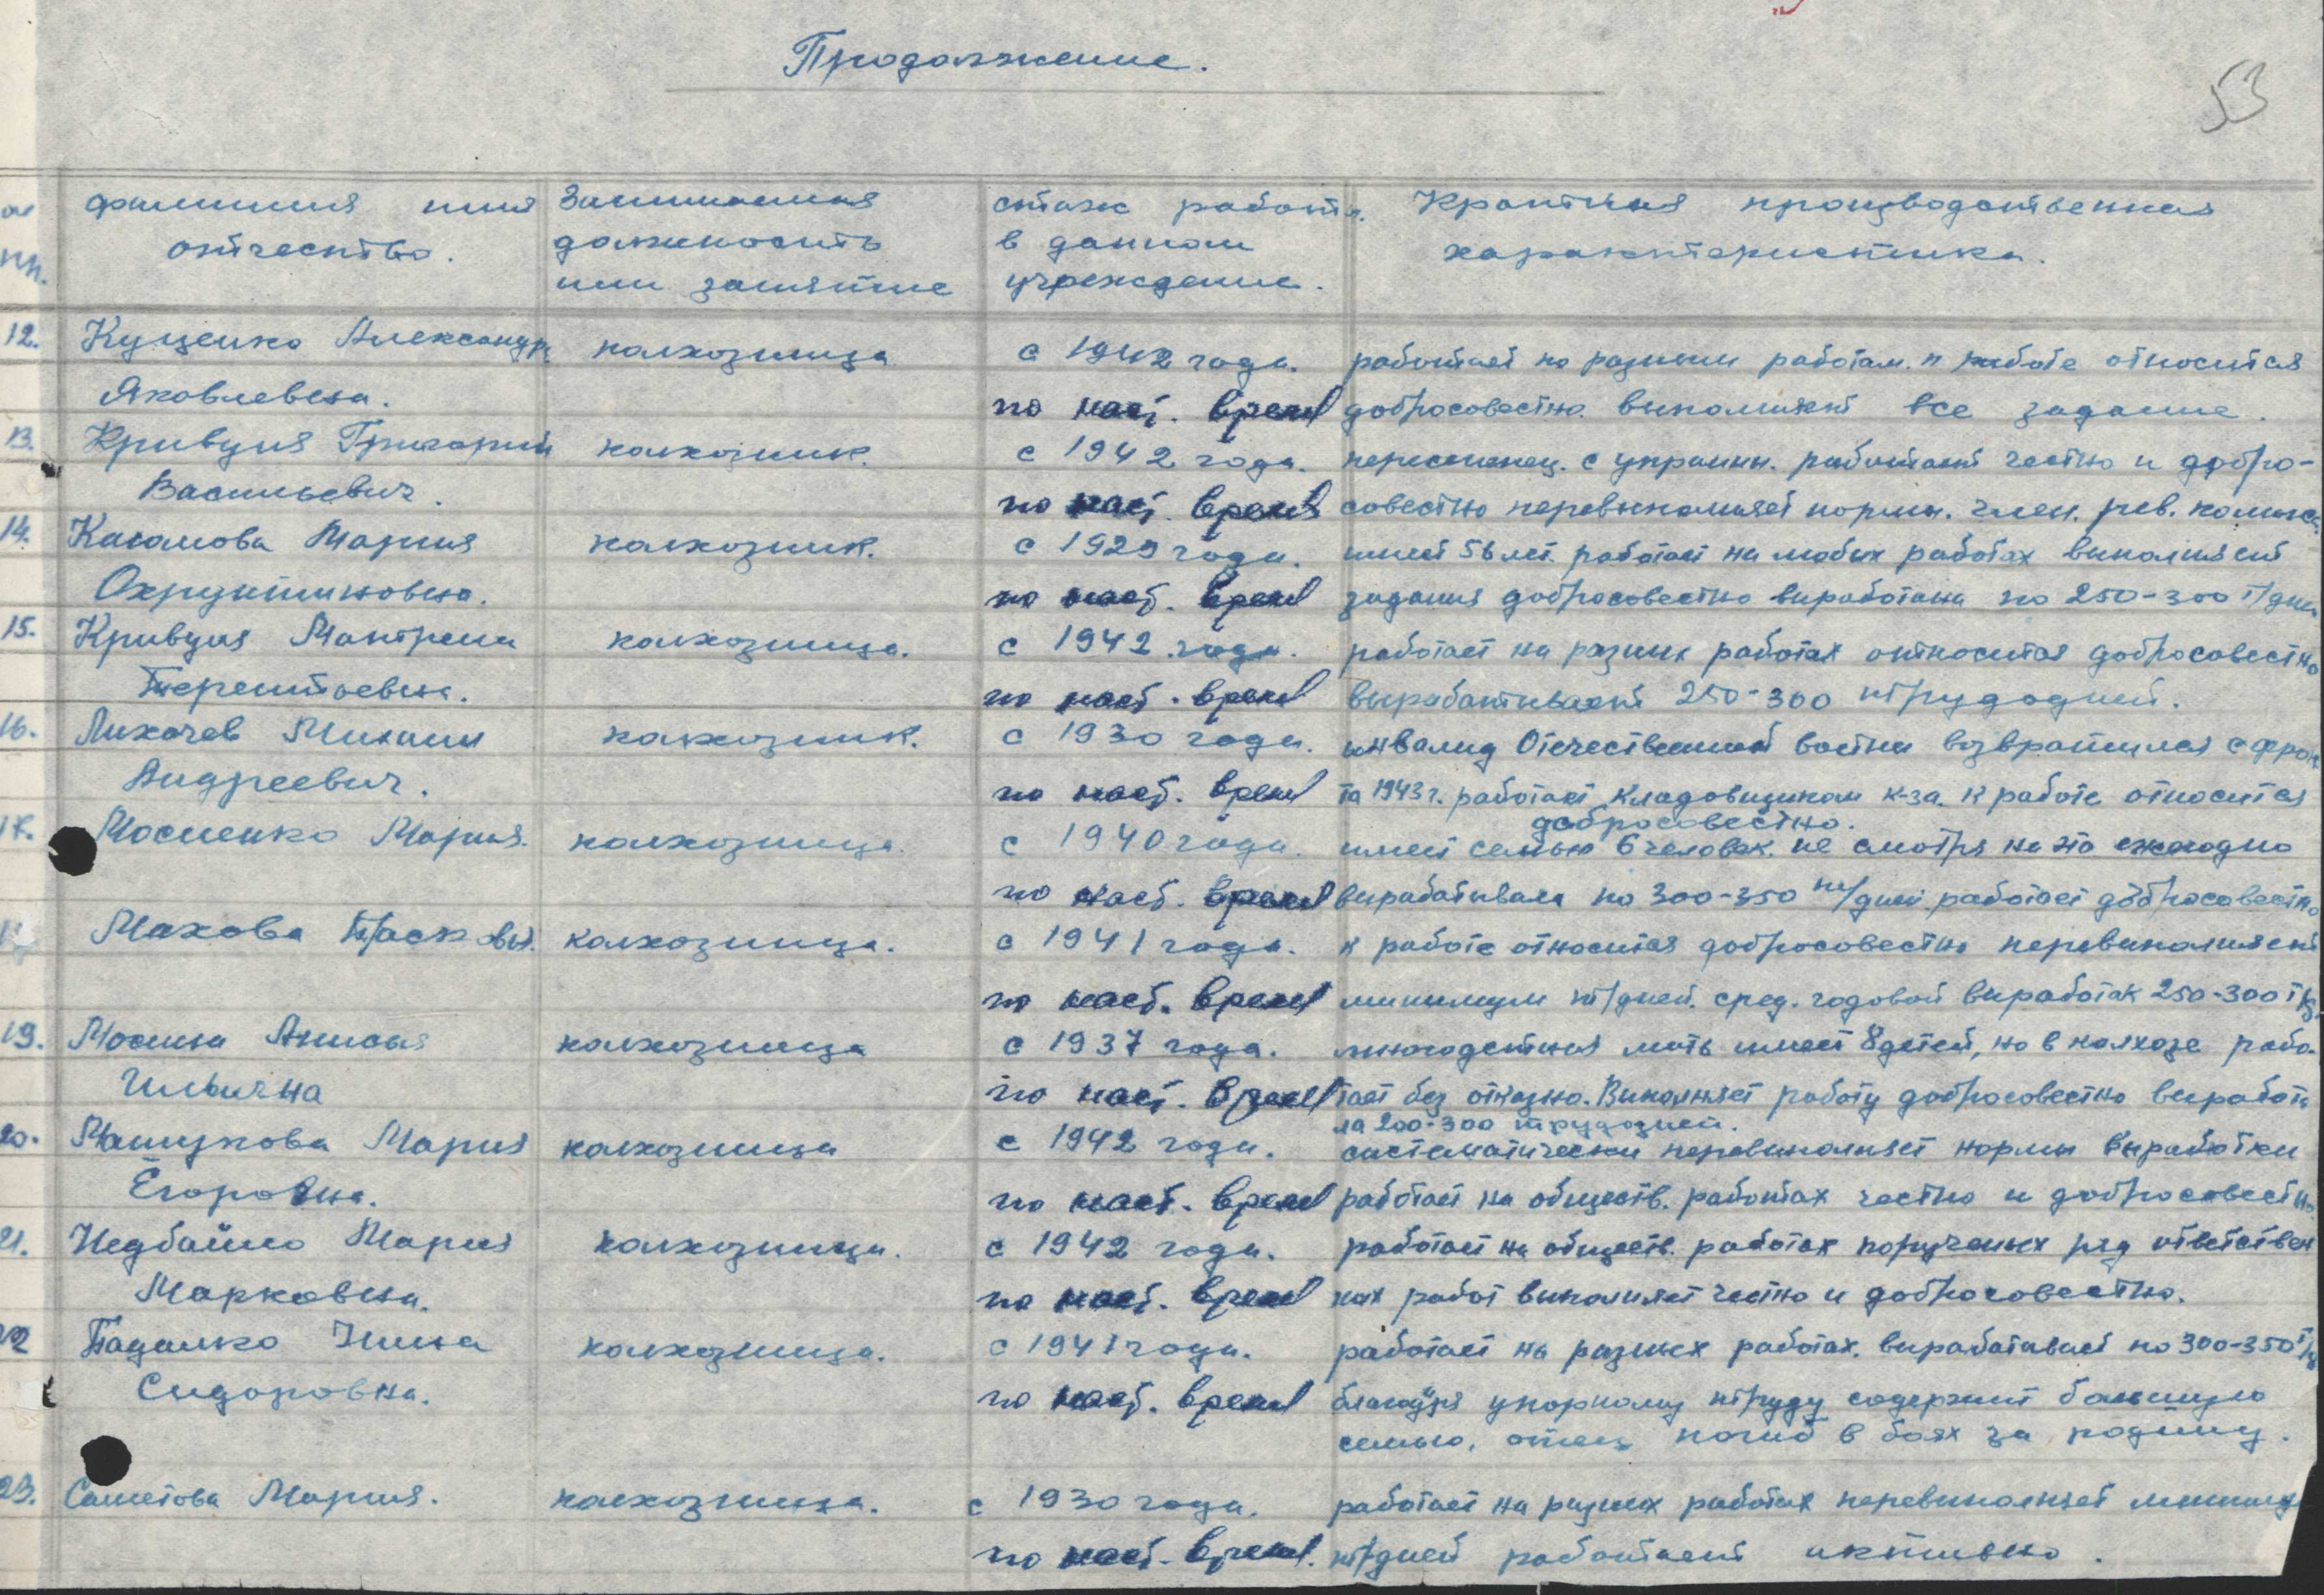 Продолжение.
53
пп.
фамилия имя
отчество.
Занимаемая
должность
или занятие
стаж работы
в данном
учреждение.
Краткая производственная
характеристика.
12. Куценко Александра колхозница с 1942 года. работает на разных работам. к работе относится
Яковлевна. по наст. время добросовестно выполняет все задание.
13. Кривуля Григорий колхозник. с 1942 года. переселенец. с украины. работает честно и добро-
Васильевич. по наст. время совестно перевыполняет нормы. член. рев. комисс.
14. Мария колхозник. с 1929 года. имеет 56 лет. работает на любых работах выполняет
по наст. время задания добросовестно выработала по 250-300 т/дней
15. Кривуля Мотрена колхозница. с 1942 года. работает на разных работах относится добросовестно
Терентьевна. по наст. время вырабатывает 250-300 трудодней.
16. Лихачев Михаил колхозник. с 1930 года. инвалид Отечественной войны возвратился с фрон
Андреевич. по наст. время та 1943 г. работает кладовщиком к-за. к работе относится
добросовестно.
17. Мосиенко Мария. колхозница. с 1940 года. имеет семью 6 человек. не смотря на это ежегодно
по наст. время вырабатывала по 300-350 т/дней работает добросовестно
Махова Прасковья. колхозница. с 1941 года. к работе относится добросовестно перевыполняет
по наст. время минимум т/дней. сред. годовой выработок 250-300
19. Мосина Анисья колхозница с 1937 года. многодетная мать имеет 8 детей, но в колхозе рабо-
Ильична по наст. время тает без отказно. Выполняет работу добросовестно выработа
ла 200-300 трудодней.
20. Машукова Мария колхозница с 1942 года. систематически перевыполняет нормы выработки
Егоровна. по наст. время работает на обществ. работах честно и добросовестно
21. Недбайло Мария колхозница. с 1942 года. работает на обществ. работах порученых ряд ответствен
Марковна. по наст. время ных работ выполняет честно и добросовестно.
22 Падалко Нина колхозница. с 1941 года. работает на разных работах. вырабатывает по 300-350
Сидоровна. по наст. время благодря упорному труду содержит большую
семью, отец погиб в боях за родину.
23. Мария. колхозница. с 1930 года. работает на разных работах перевыполняет минимум
по наст. время. т/дней работает активно.